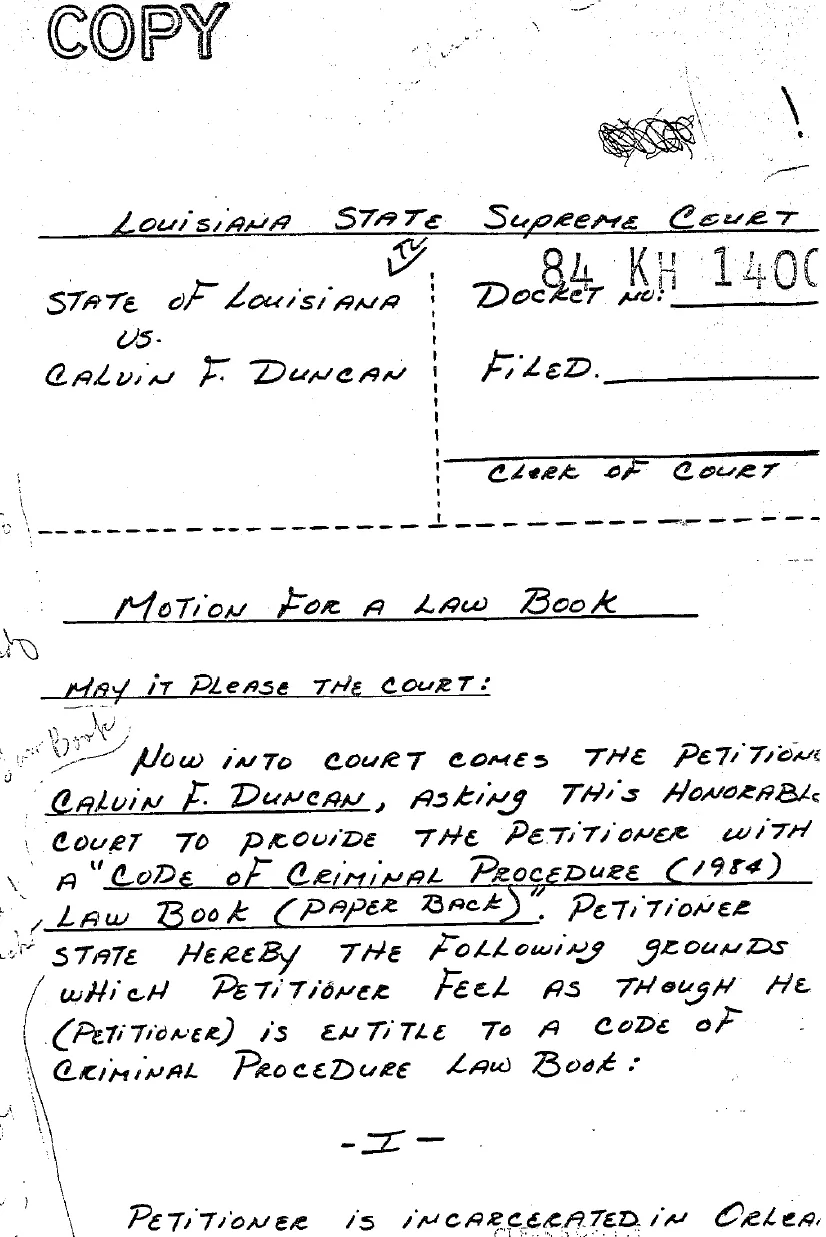 COPY
LOUISIANA STATE SUPREME COURT
STATE OF LOUISIANA
VS.
CALVIN F. DUNCAN
84 KH 140
DOCKET NO:
FILED.
CLERK OF COURT
MOTION FOR A LAW BOOK
MAY IT PLEASE THE COURT:
Law Book
NOW INTO COURT COMES THE PETITIONE
CALVIN F. DUNCAN, ASKING THIS HONORABLE
COURT TO PROVIDE THE PETITIONER WITH
A "CODE OF CRIMINAL PROCEDURE (1984)
LAW BOOK (PAPER BACK)". PETITIONER
STATE HEREBY THE FOLLOWING GROUNDS
WHICH PETITIONER FEEL AS THOUGH HE
(PETITIONER) IS ENTITLE TO A CODE OF
CRIMINAL PROCEDURE LAW BOOK:
- I -
PETITIONER IS INCARCERATED IN ORLEA